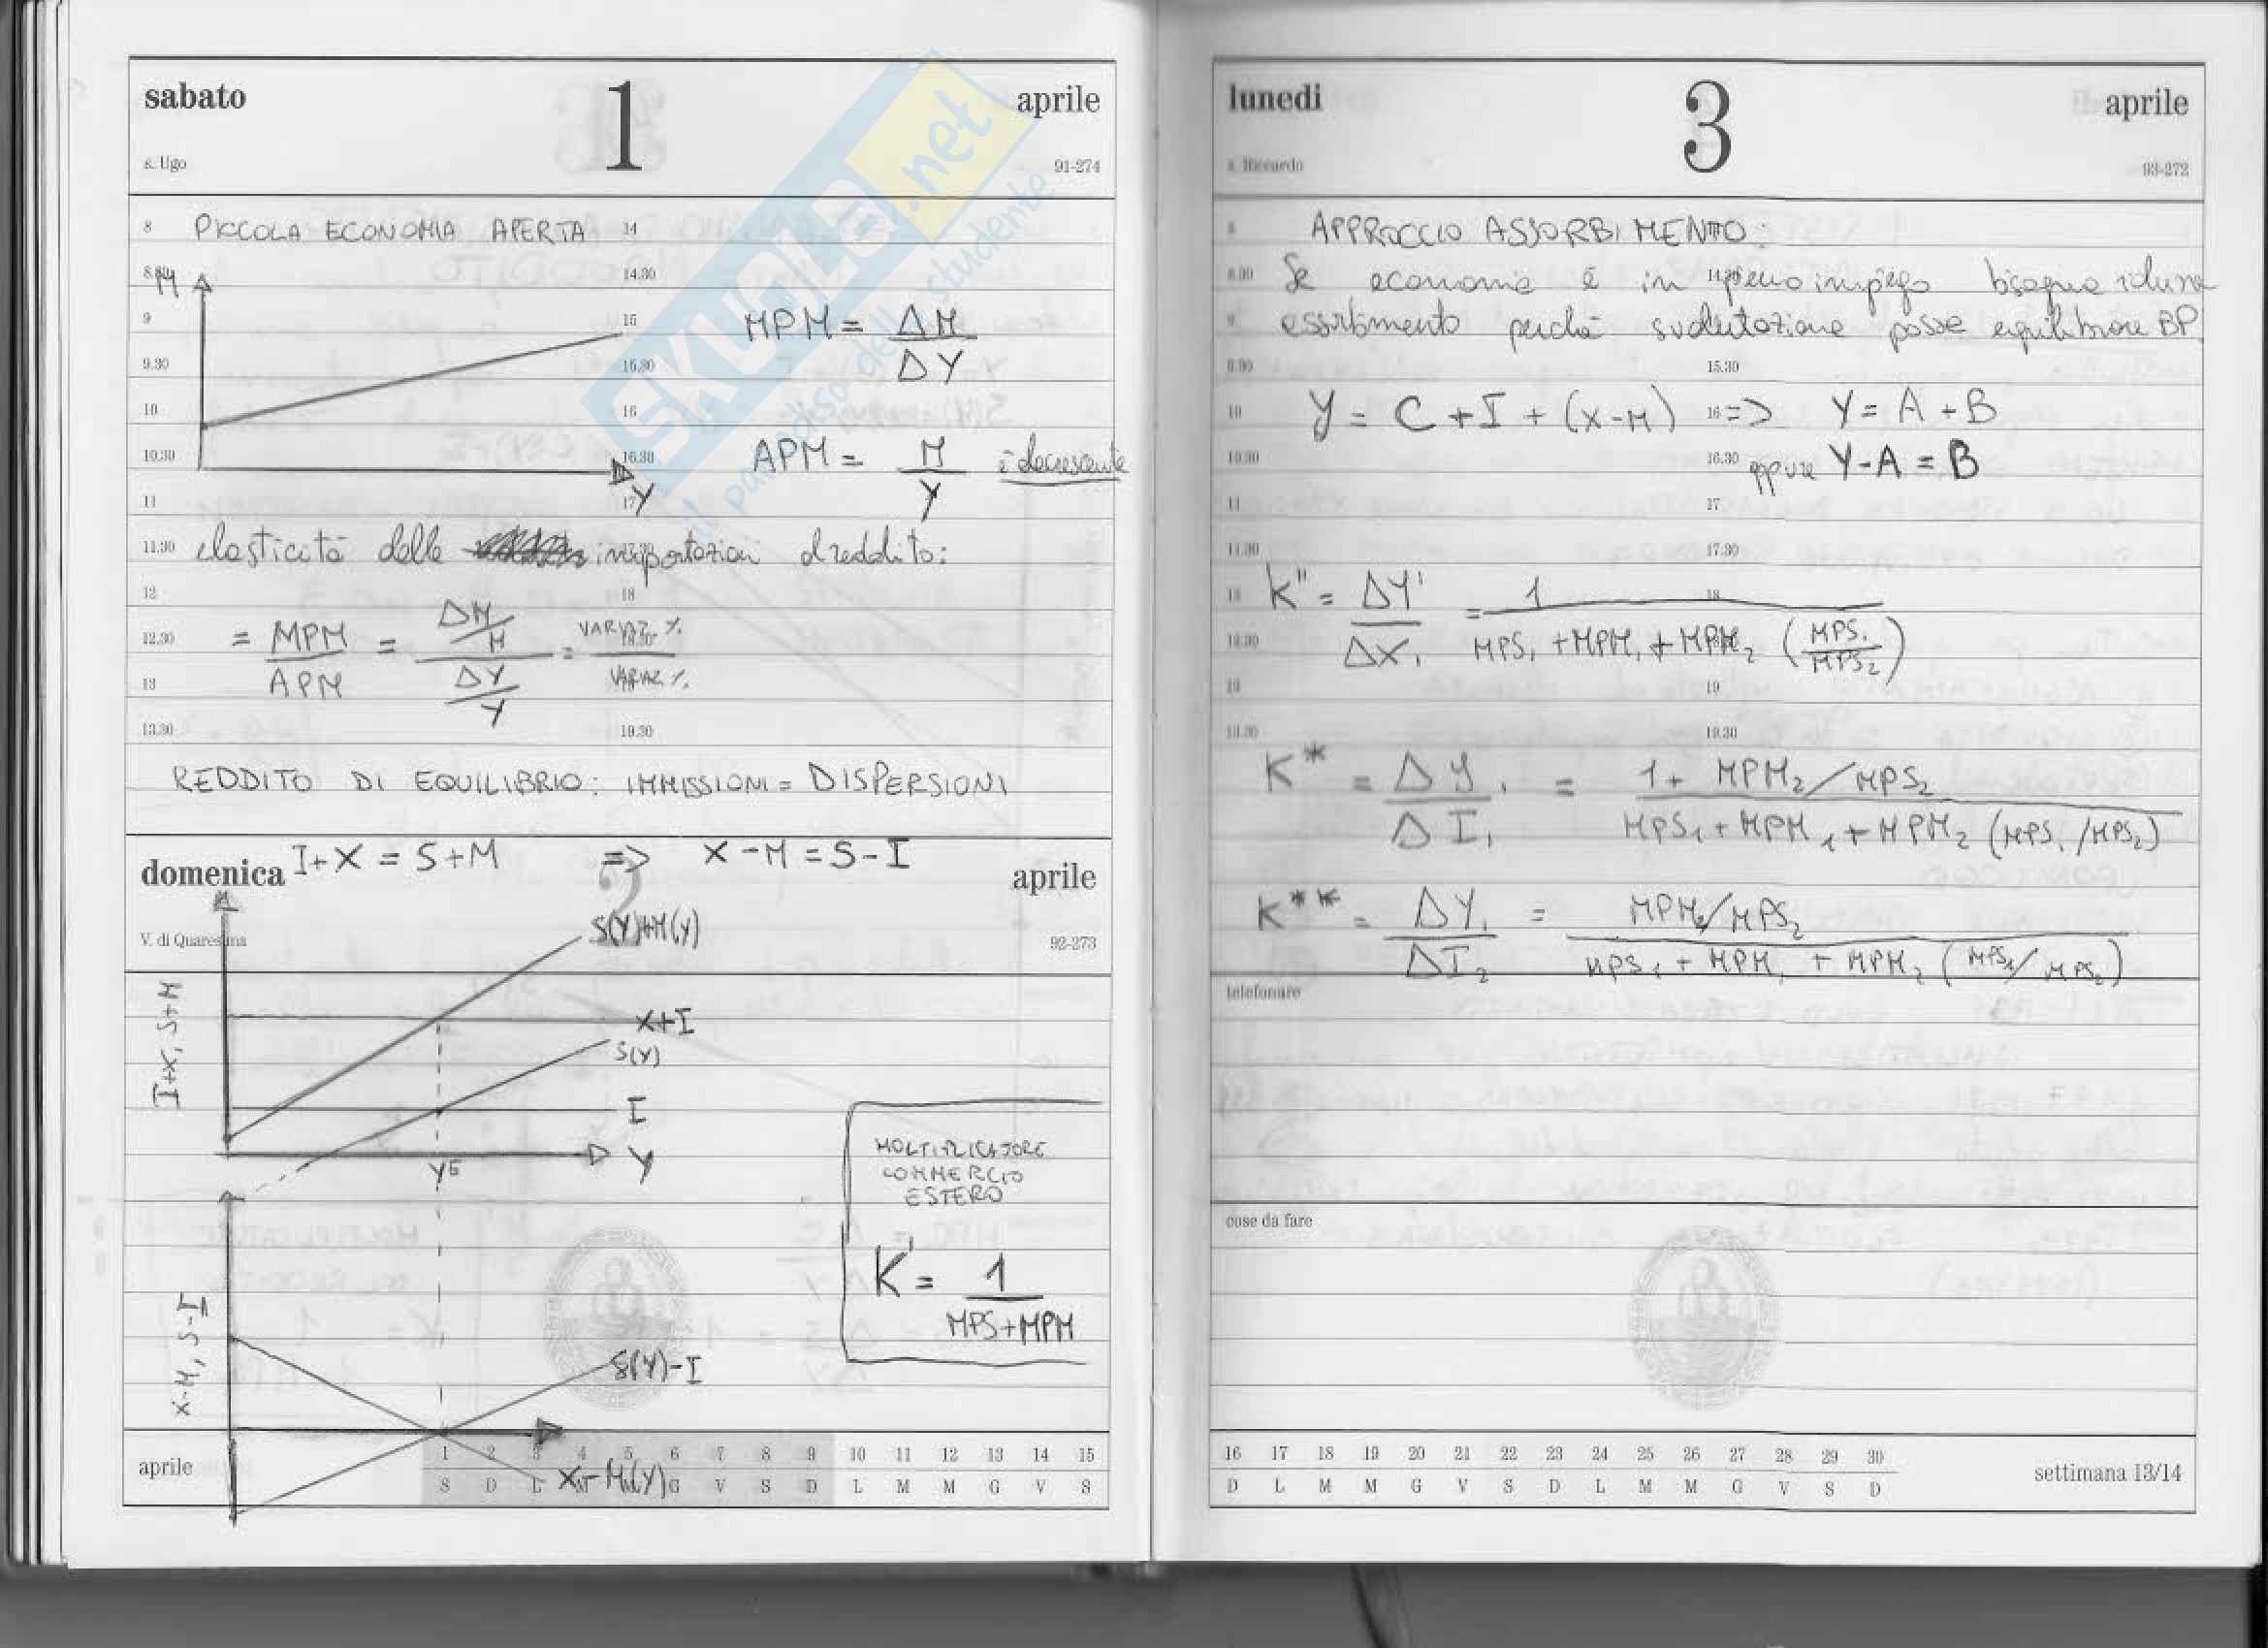 sabato 1 aprile
s. Ugo 91-274
8 PICCOLA ECONOMIA APERTA 14
8.30 M 14.30
9 15 MPM = ΔM / ΔY
9.30 15.30
10 16
10.30 16.30 APM = M / Y è decrescente
11 17 Y
11.30 elasticità delle importazioni al reddito: 17.30
12 18
12.30 = MPM / APM = ΔM/M / ΔY/Y = VARIAZ. % / VARIAZ %
13
13.30 19.30
REDDITO DI EQUILIBRIO: IMMISSIONI = DISPERSIONI
domenica 2 aprile
I+X = S+M => X-M = S-I
V. di Quaresima 92-273
S(Y)+M(Y)
I+X, S+M
X+I
S(Y)
I
Y
YE
MOLTIPLICATORE
COMMERCIO
ESTERO
K' = 1 / MPS+MPM
X-M, S-I
S(Y)-I
X-M(Y)
aprile
1 2 3 4 5 6 7 8 9 10 11 12 13 14 15
S D L M M G V S D L M M G V S
lunedi 3 aprile
s. Riccardo 93-272
APPROCCIO ASSORBIMENTO:
8.30 Se economia è in pieno impiego bisogna ridurre 14.30
9 assorbimento perché svalutazione possa equilibrare BP
9.30 15.30
10 Y = C + I + (X-M) 16 => Y = A + B
10.30 16.30 oppure Y-A = B
11 17
11.30 17.30
K'' = ΔY' / ΔX1 = 1 / MPS1 + MPM1 + MPM2 (MPS1 / MPS2) 18
12.30
19
19.30
K* = ΔY1 / ΔI1 = 1 + MPM2/MPS2 / MPS1 + MPM1 + MPM2 (MPS1/MPS2)
K** = ΔY1 / ΔI2 = MPM2/MPS2 / MPS1 + MPM1 + MPM2 (MPS1/MPS2)
telefonare
cose da fare
16 17 18 19 20 21 22 23 24 25 26 27 28 29 30
D L M M G V S D L M M G V S D
settimana 13/14
SKUOLA.net
il paradiso dello studente